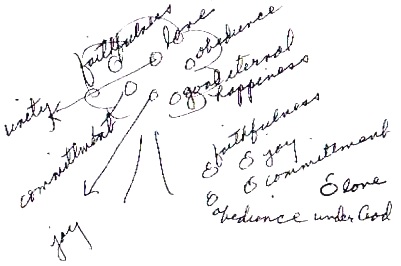 faithfulness
love
obedience
unity
goal eternal
happiness
commitment
joy
faithfulness
joy
committment
love
obediance under God